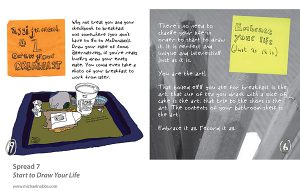 assignment
# 1
Draw your
BREAKFAST
Why not treat you and your
sketchbook to breakfast
out somewhere (you don't
have to go to McDonalds).
Draw your plate of some
description or, if you're really
hungry draw your empty
plate. You could even take a
photo of your breakfast to
work from later.
There's no need to
change your life in
order to start to draw
it. It is perfect and
unique and interesting
just as it is.
You are the art!
That boiled egg you ate for breakfast is the
art, that cup of tea you drank with a slice of
cake is the art, that trip to the shops is the
art. The contents of your bathroom shelf is
the art.
Embrace it all. Record it all.
Embrace
your life
(Just as it is)
Spread 7
Start to Draw Your Life
www.michaelnobbs.com